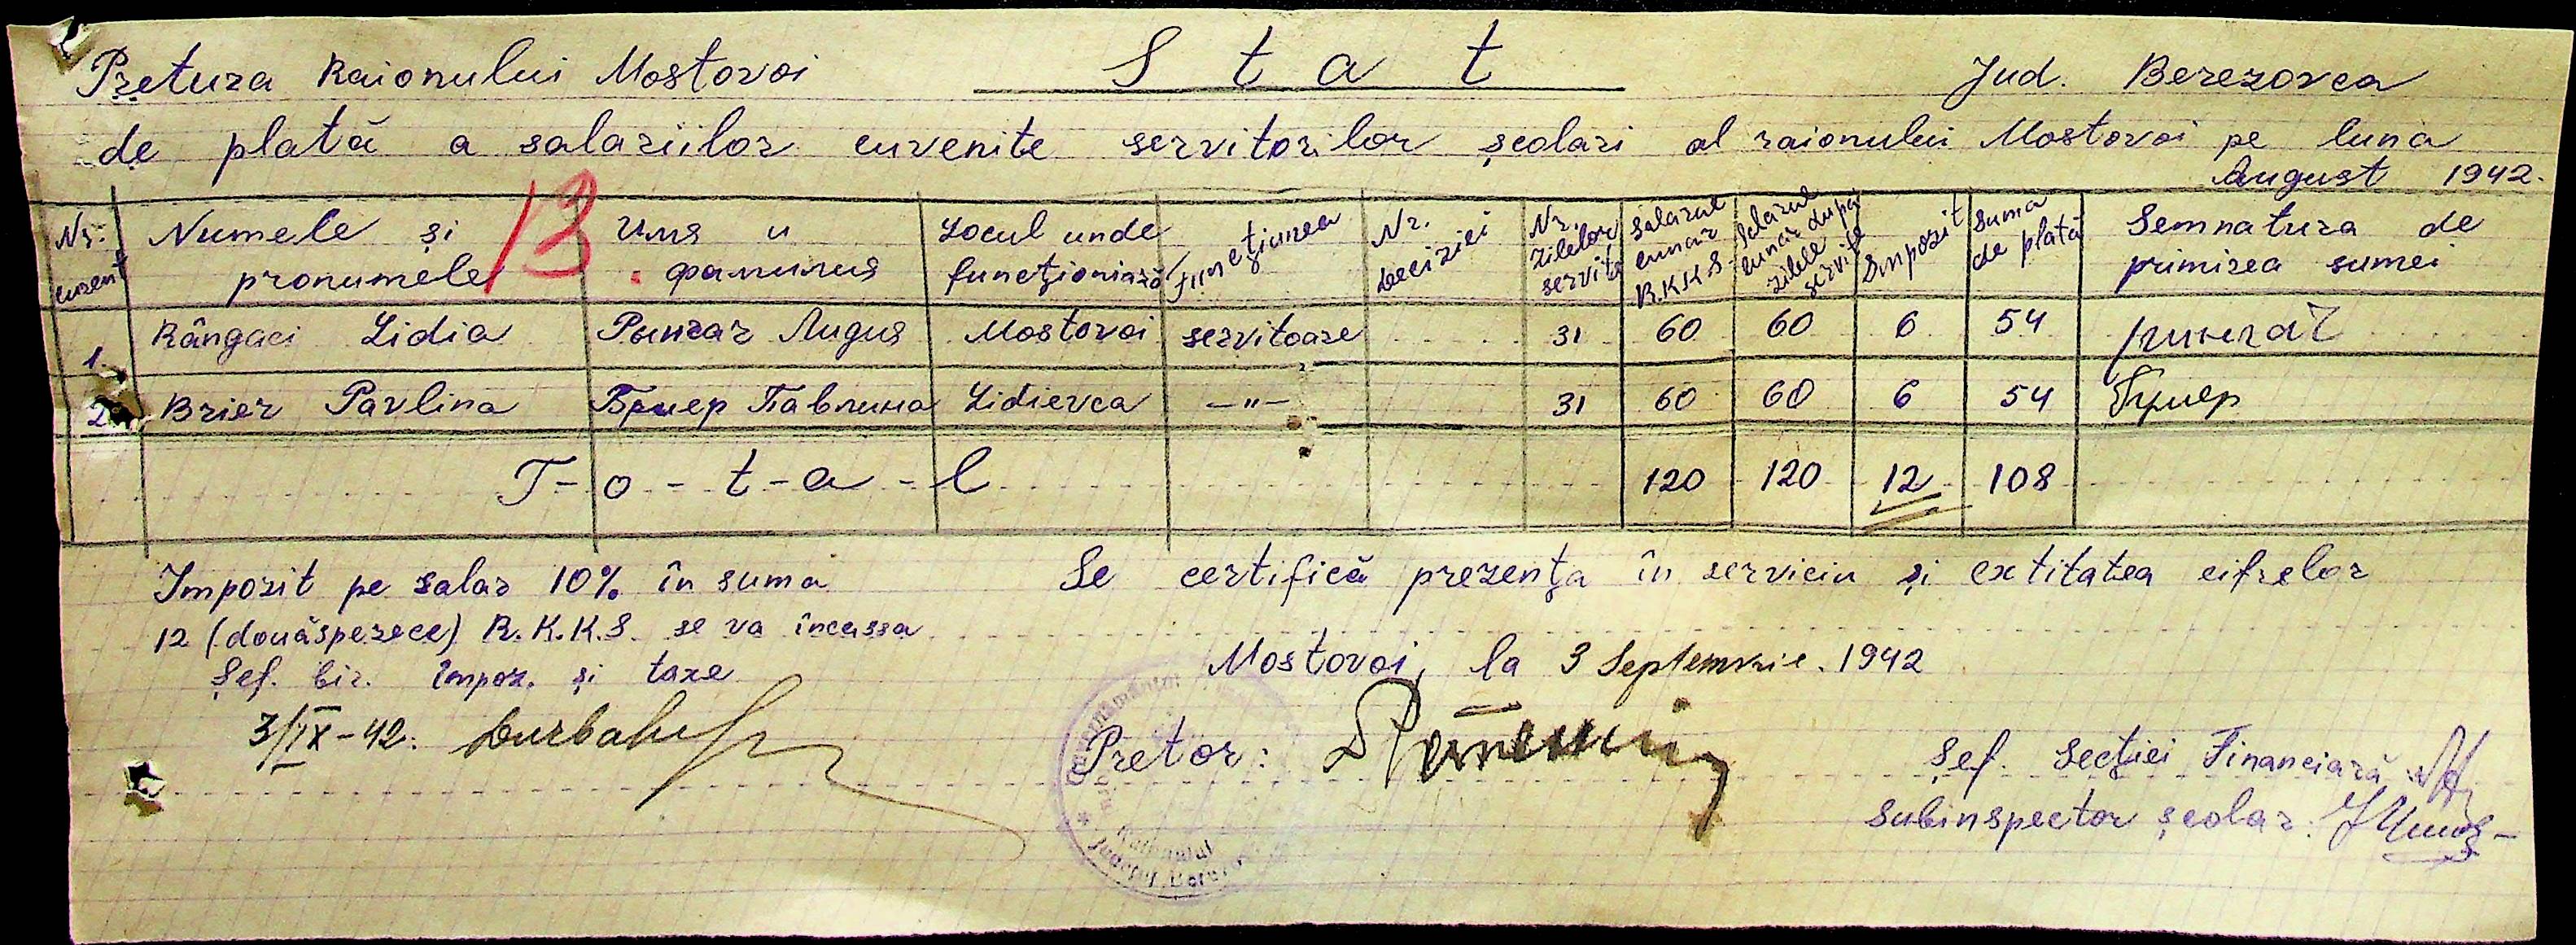 Pretura Raionului Mostovoi S t a t Jud. Berezovca
de plată a salariilor cuvenite servitorilor școlari al raionului Mostovoi pe luna
August 1942.
13
Nr. curent | Numele și pronumele | Имя и фамилия | Locul unde funcționiază | Funcțiunea | Nr. deciziei | Nr. zilelor servite | Salarul lunar R.K.K.S. | Salarul lunar după zilele servite | Impozit | Suma de plată | Semnatura de primirea sumei
1. | Rângaci Lidia | Рынгач Лидия | Mostovoi | servitoare | | 31 | 60 | 60 | 6 | 54 |
2. | Brier Pavlina | Бриер Павлина | Lidievca | —"— | | 31 | 60 | 60 | 6 | 54 | Бриер
T-o-t-a-l | 120 | 120 | 12 | 108
Impozit pe salar 10% în suma
12 (douăsperece) R.K.K.S. se va încassa
Șef. bir. impoz. și taxe
3/IX-42.
Se certifică prezența în serviciu și extitatea cifrelor
Mostovoi, la 3 Septemvrie. 1942
Pretor:
Șef. Secției Financiară
Subinspector școlar:
Raionul
Județul